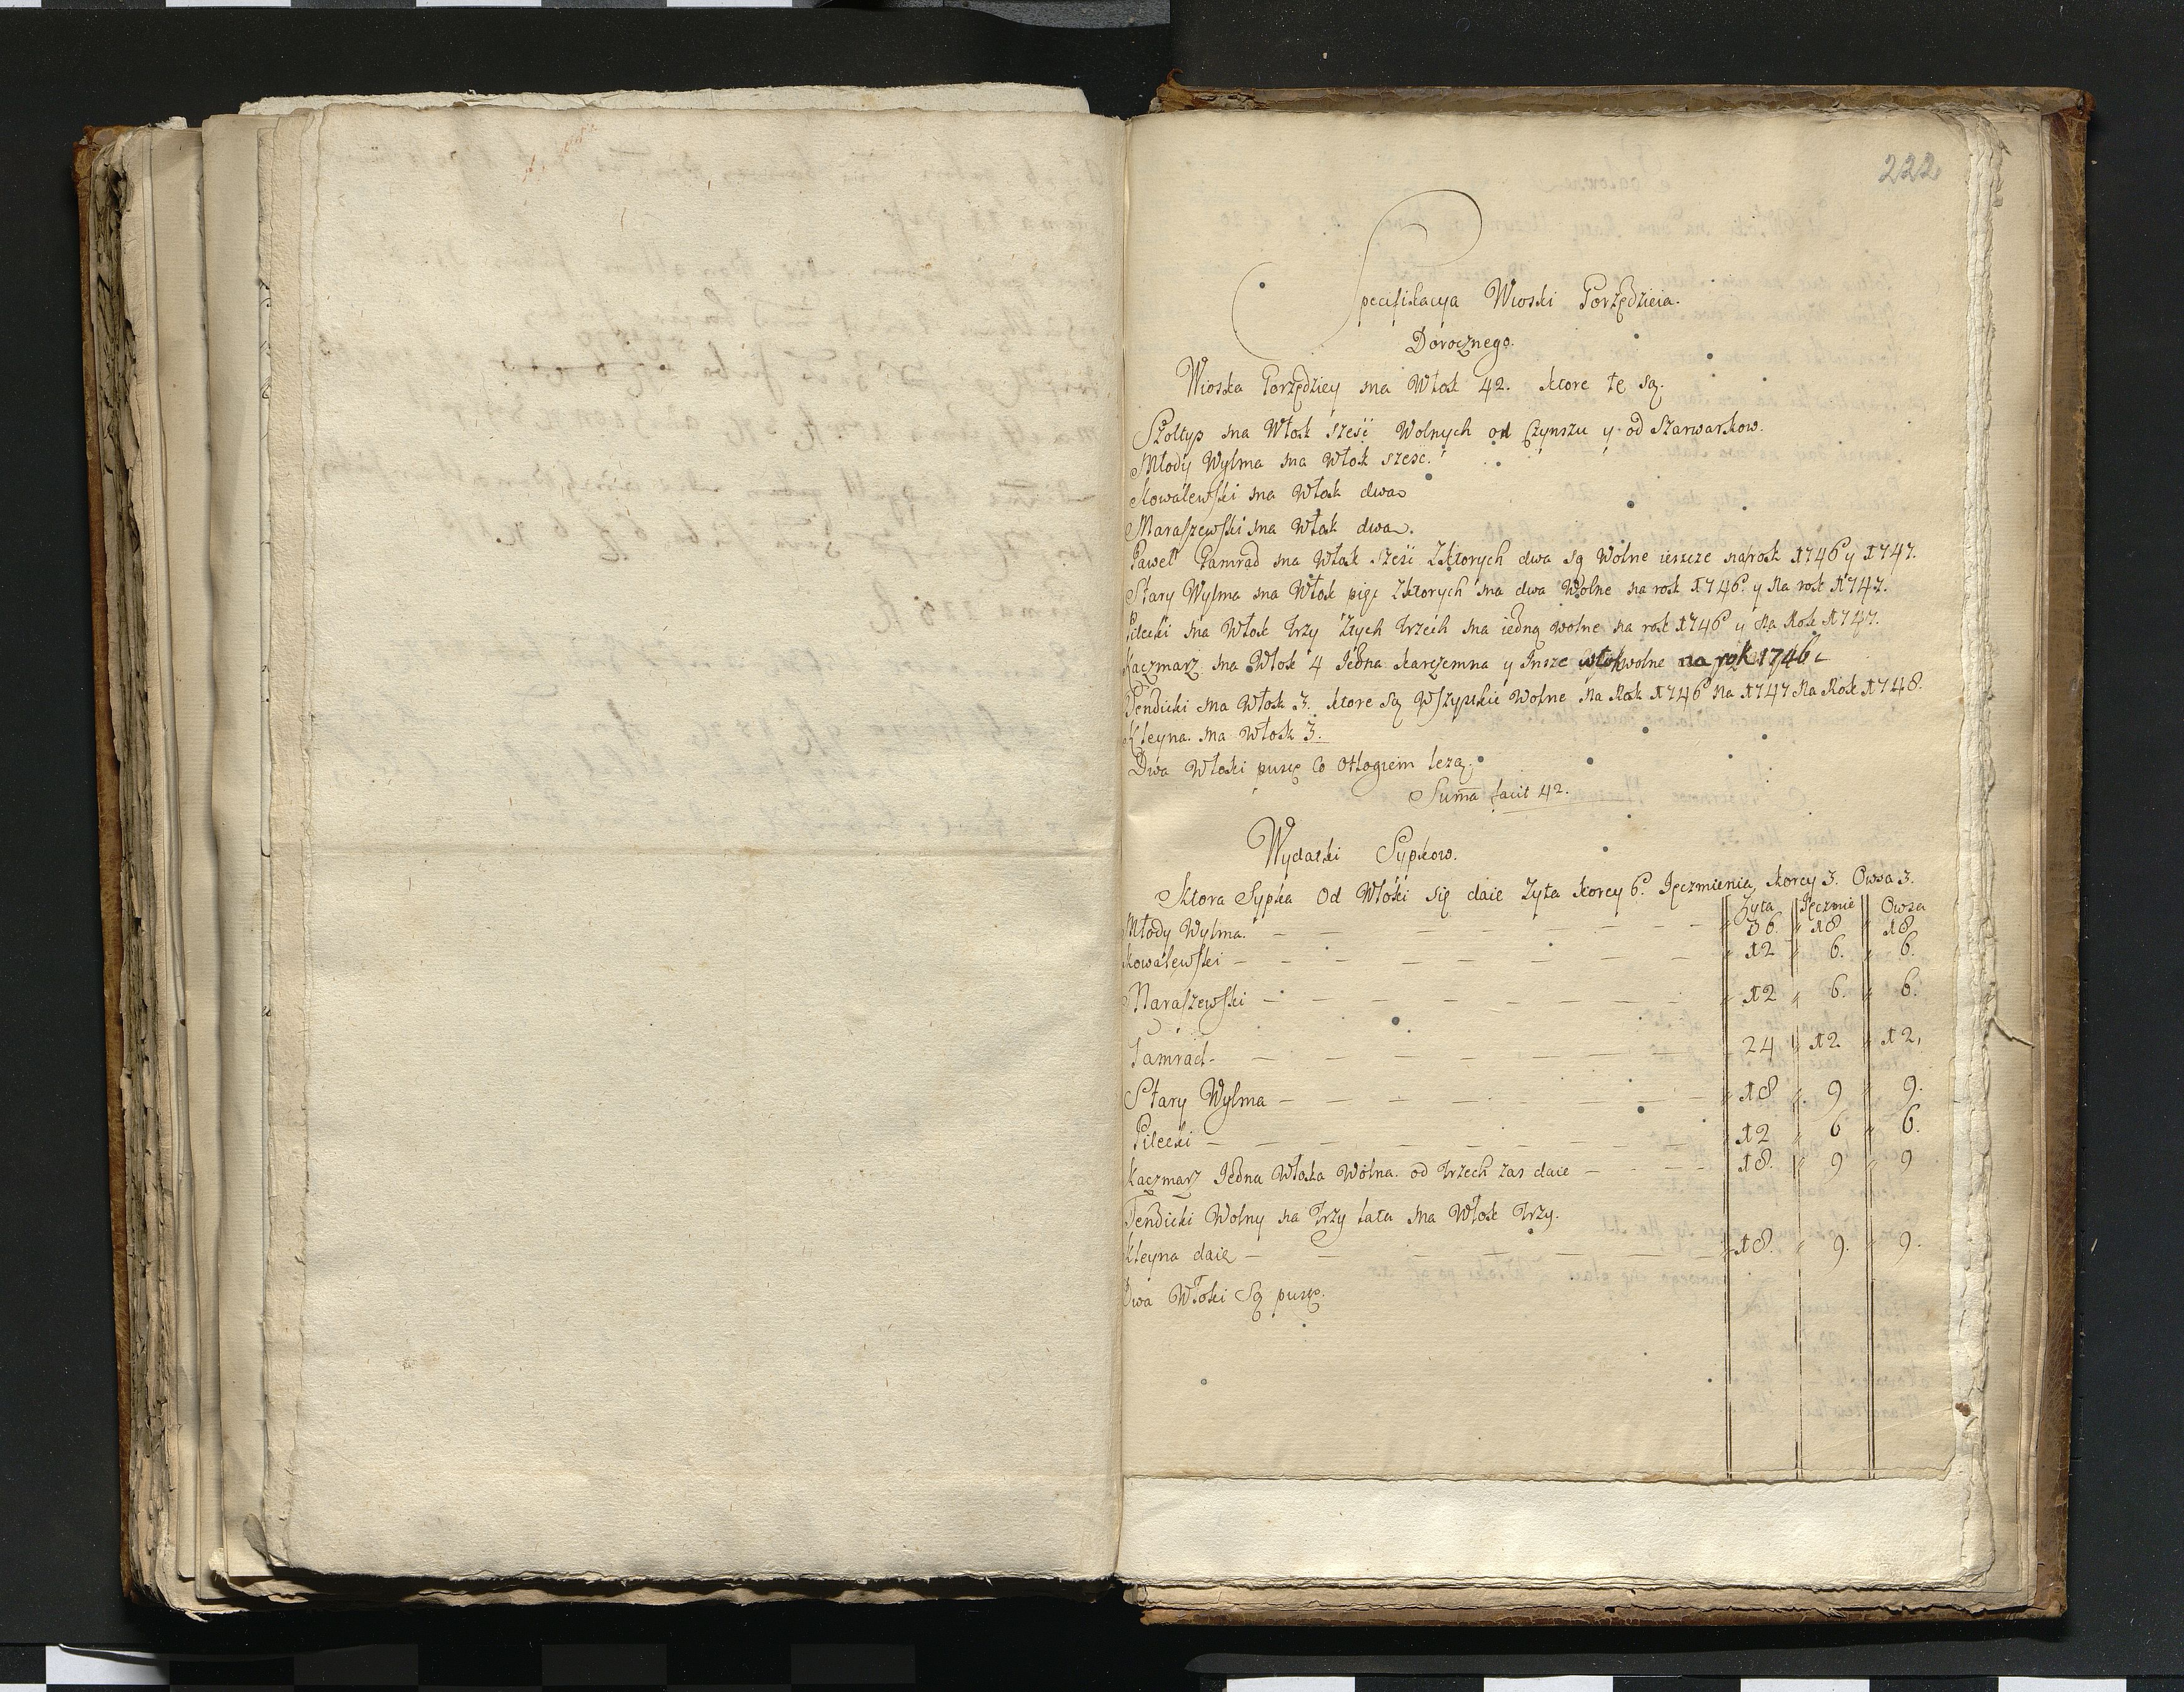 222
Specifikacya Wioski Porzędzieia.
Dorocznego.
Wioska Porzędziey ma Włok 42. ktore te są.
Szołtys ma Włok sześć Wolnych od Czynszu y od Szarwarkow.
Młody Wylma ma Włok sześc.
Kowalewski ma Włok dwa
Maraszewski ma Włok dwa.
Paweł Pamrad ma Włok sześc Zktorych dwa są Wolne ieszcze na rok 1746 y 1747.
Stary Wylma ma Włok pięc Zktorych ma dwa Wolne na rok 1746. y Na rok 1747.
Pilecki ma Włok trzy Ztych trzech ma iedną wolne na rok 1746 y Na Rok 1747.
Kaczmarz ma Włok 4 Jedna karczemna y Insze włok wolne na rok 1746
Dendicki ma Włok 3. ktore są Wszystkie Wolne Na Rok 1746 Na 1747 Na Rok 1748.
Kleyna ma Włok 3.
Dwa Włoki puste Co Odłogiem leżą.
Suma facit 42.
Wydatki Sypkow.
Ktora Sypka Od Włoki się daie Zyta korcy 6. Jęczmienia korcy 3. Owsa 3.
Zyta Jęczmie Owsa
Młody Wylma. 36. 18 18
Kowalewski 12 6. 6.
Maraszewski 12 6. 6.
Pamrad 24 12 12,
Stary Wylma 18 9 9.
Pilecki 12 6 6.
Kaczmarz Jedna Włoka Wolna. od trzech zas daie 18. 9 9
Dendicki Wolny na Trzy lata ma Włok trzy.
Kleyna daie 18. 9. 9.
Dwa Włoki Są puste.